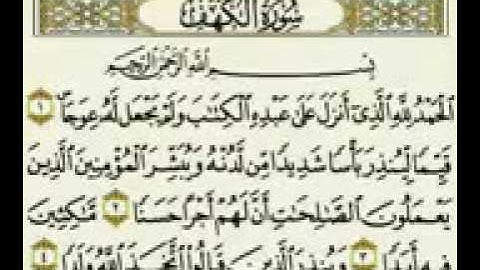 سُورَةُ الكَهْفِ
بِسْمِ اللَّهِ الرَّحْمَٰنِ الرَّحِيمِ
الْحَمْدُ لِلَّهِ الَّذِي أَنزَلَ عَلَىٰ عَبْدِهِ الْكِتَابَ وَلَمْ يَجْعَل لَّهُ عِوَجًا ١
قَيِّمًا لِّيُنذِرَ بَأْسًا شَدِيدًا مِّن لَّدُنْهُ وَيُبَشِّرَ الْمُؤْمِنِينَ الَّذِينَ
يَعْمَلُونَ الصَّالِحَاتِ أَنَّ لَهُمْ أَجْرًا حَسَنًا ٢ مَّاكِثِينَ
فِيهِ أَبَدًا ٣ وَيُنذِرَ الَّذِينَ قَالُوا اتَّخَذَ اللَّهُ وَلَدًا ٤